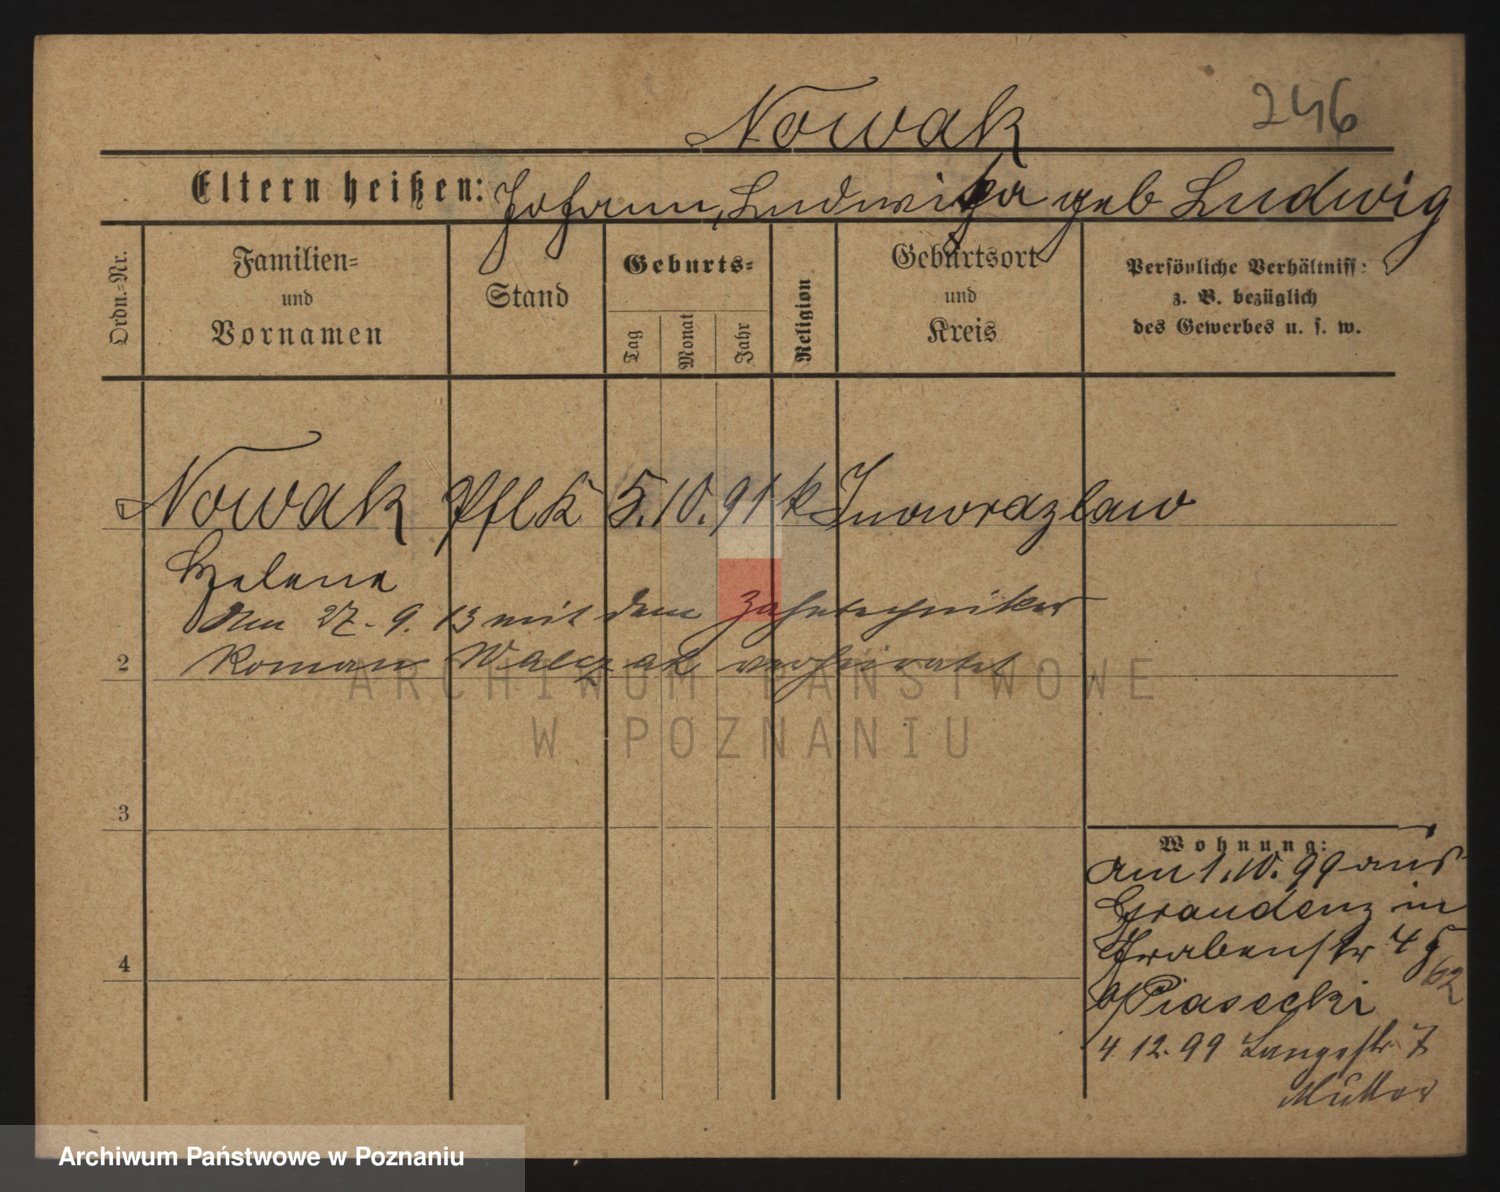 Nowak 246
Eltern heißen: Johann, Ludwika geb Ludwig
Ordn.-Nr.
Familien-
und
Vornamen
Stand
Geburts-
Tag
Monat
Jahr
Religion
Geburtsort
und
Kreis
Persönliche Verhältniss:
z. B. bezüglich
des Gewerbes u. s. w.
Nowak PflK 5. 10. 91 k Inowrazlaw
Helene
Am 27. 9. 13 mit dem Zahntechniker
2 Roman Walczak verheiratet
ARCHIWUM PAŃSTWOWE
W POZNANIU
3
4
Wohnung:
am 1. 10. 99 aus
Graudenz in
Grabenstr 4
62
b/Piasecki
4. 12. 99 Langestr. 7
Mutter
Archiwum Państwowe w Poznaniu